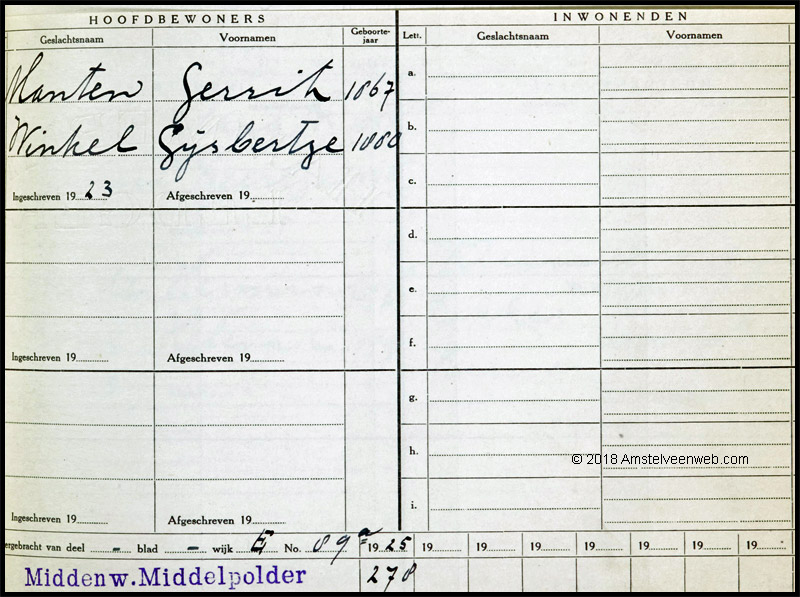 HOOFDBEWONERS
INWONENDEN
Geslachtsnaam Voornamen Geboorte-jaar Lett. Geslachtsnaam Voornamen
a.
Manten Gerrit 1867
b.
Winkel Gijsbertje
c.
Ingeschreven 19 23 Afgeschreven 19
d.
e.
f.
Ingeschreven 19 Afgeschreven 19
g.
h.
© 2018 Amstelveenweb.com
i.
Ingeschreven 19 Afgeschreven 19
ergebracht van deel - blad - wijk E No. 89a 19 25 19 19 19 19 19 19 19
Middenw. Middelpolder 278